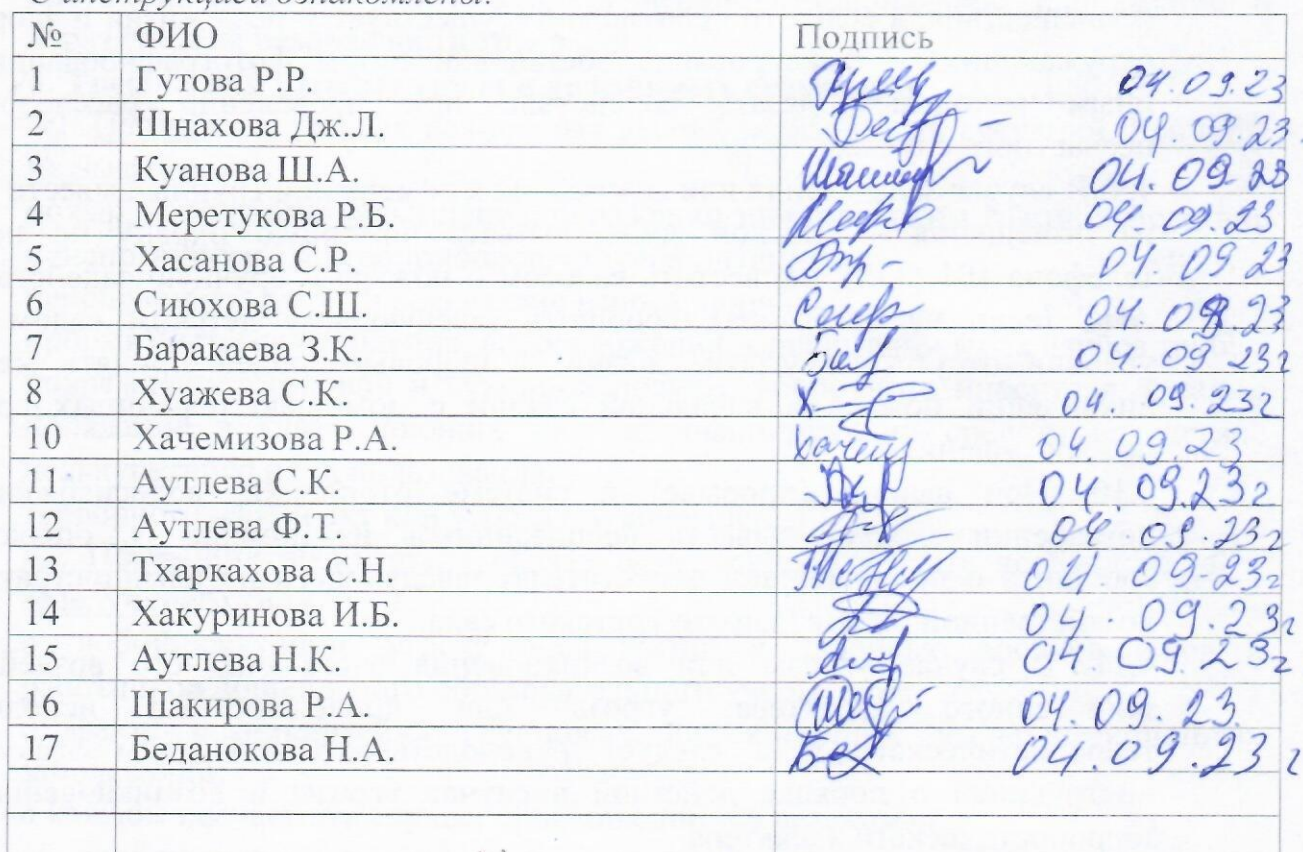 С инструкцией ознакомлены:
№ ФИО Подпись
1 Гутова Р.Р. 04.09.23
2 Шнахова Дж.Л. 04.09.23.
3 Куанова Ш.А. 04.09.23
4 Меретукова Р.Б. 04.09.23
5 Хасанова С.Р. 04.09.23
6 Сиюхова С.Ш. 04.09.23
7 Баракаева З.К. 04.09.23г
8 Хуажева С.К. 04.09.23г
10 Хачемизова Р.А. 04.09.23
11 Аутлева С.К. 04.09.23г
12 Аутлева Ф.Т. 04.09.23г
13 Тхаркахова С.Н. 04.09.23г
14 Хакуринова И.Б. 04.09.23г
15 Аутлева Н.К. 04.09.23г
16 Шакирова Р.А. 04.09.23.
17 Беданокова Н.А. 04.09.23г